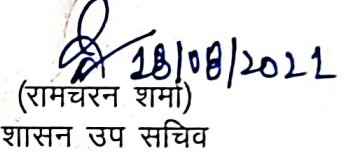 18/08/2021
(रामचरन शर्मा)
शासन उप सचिव